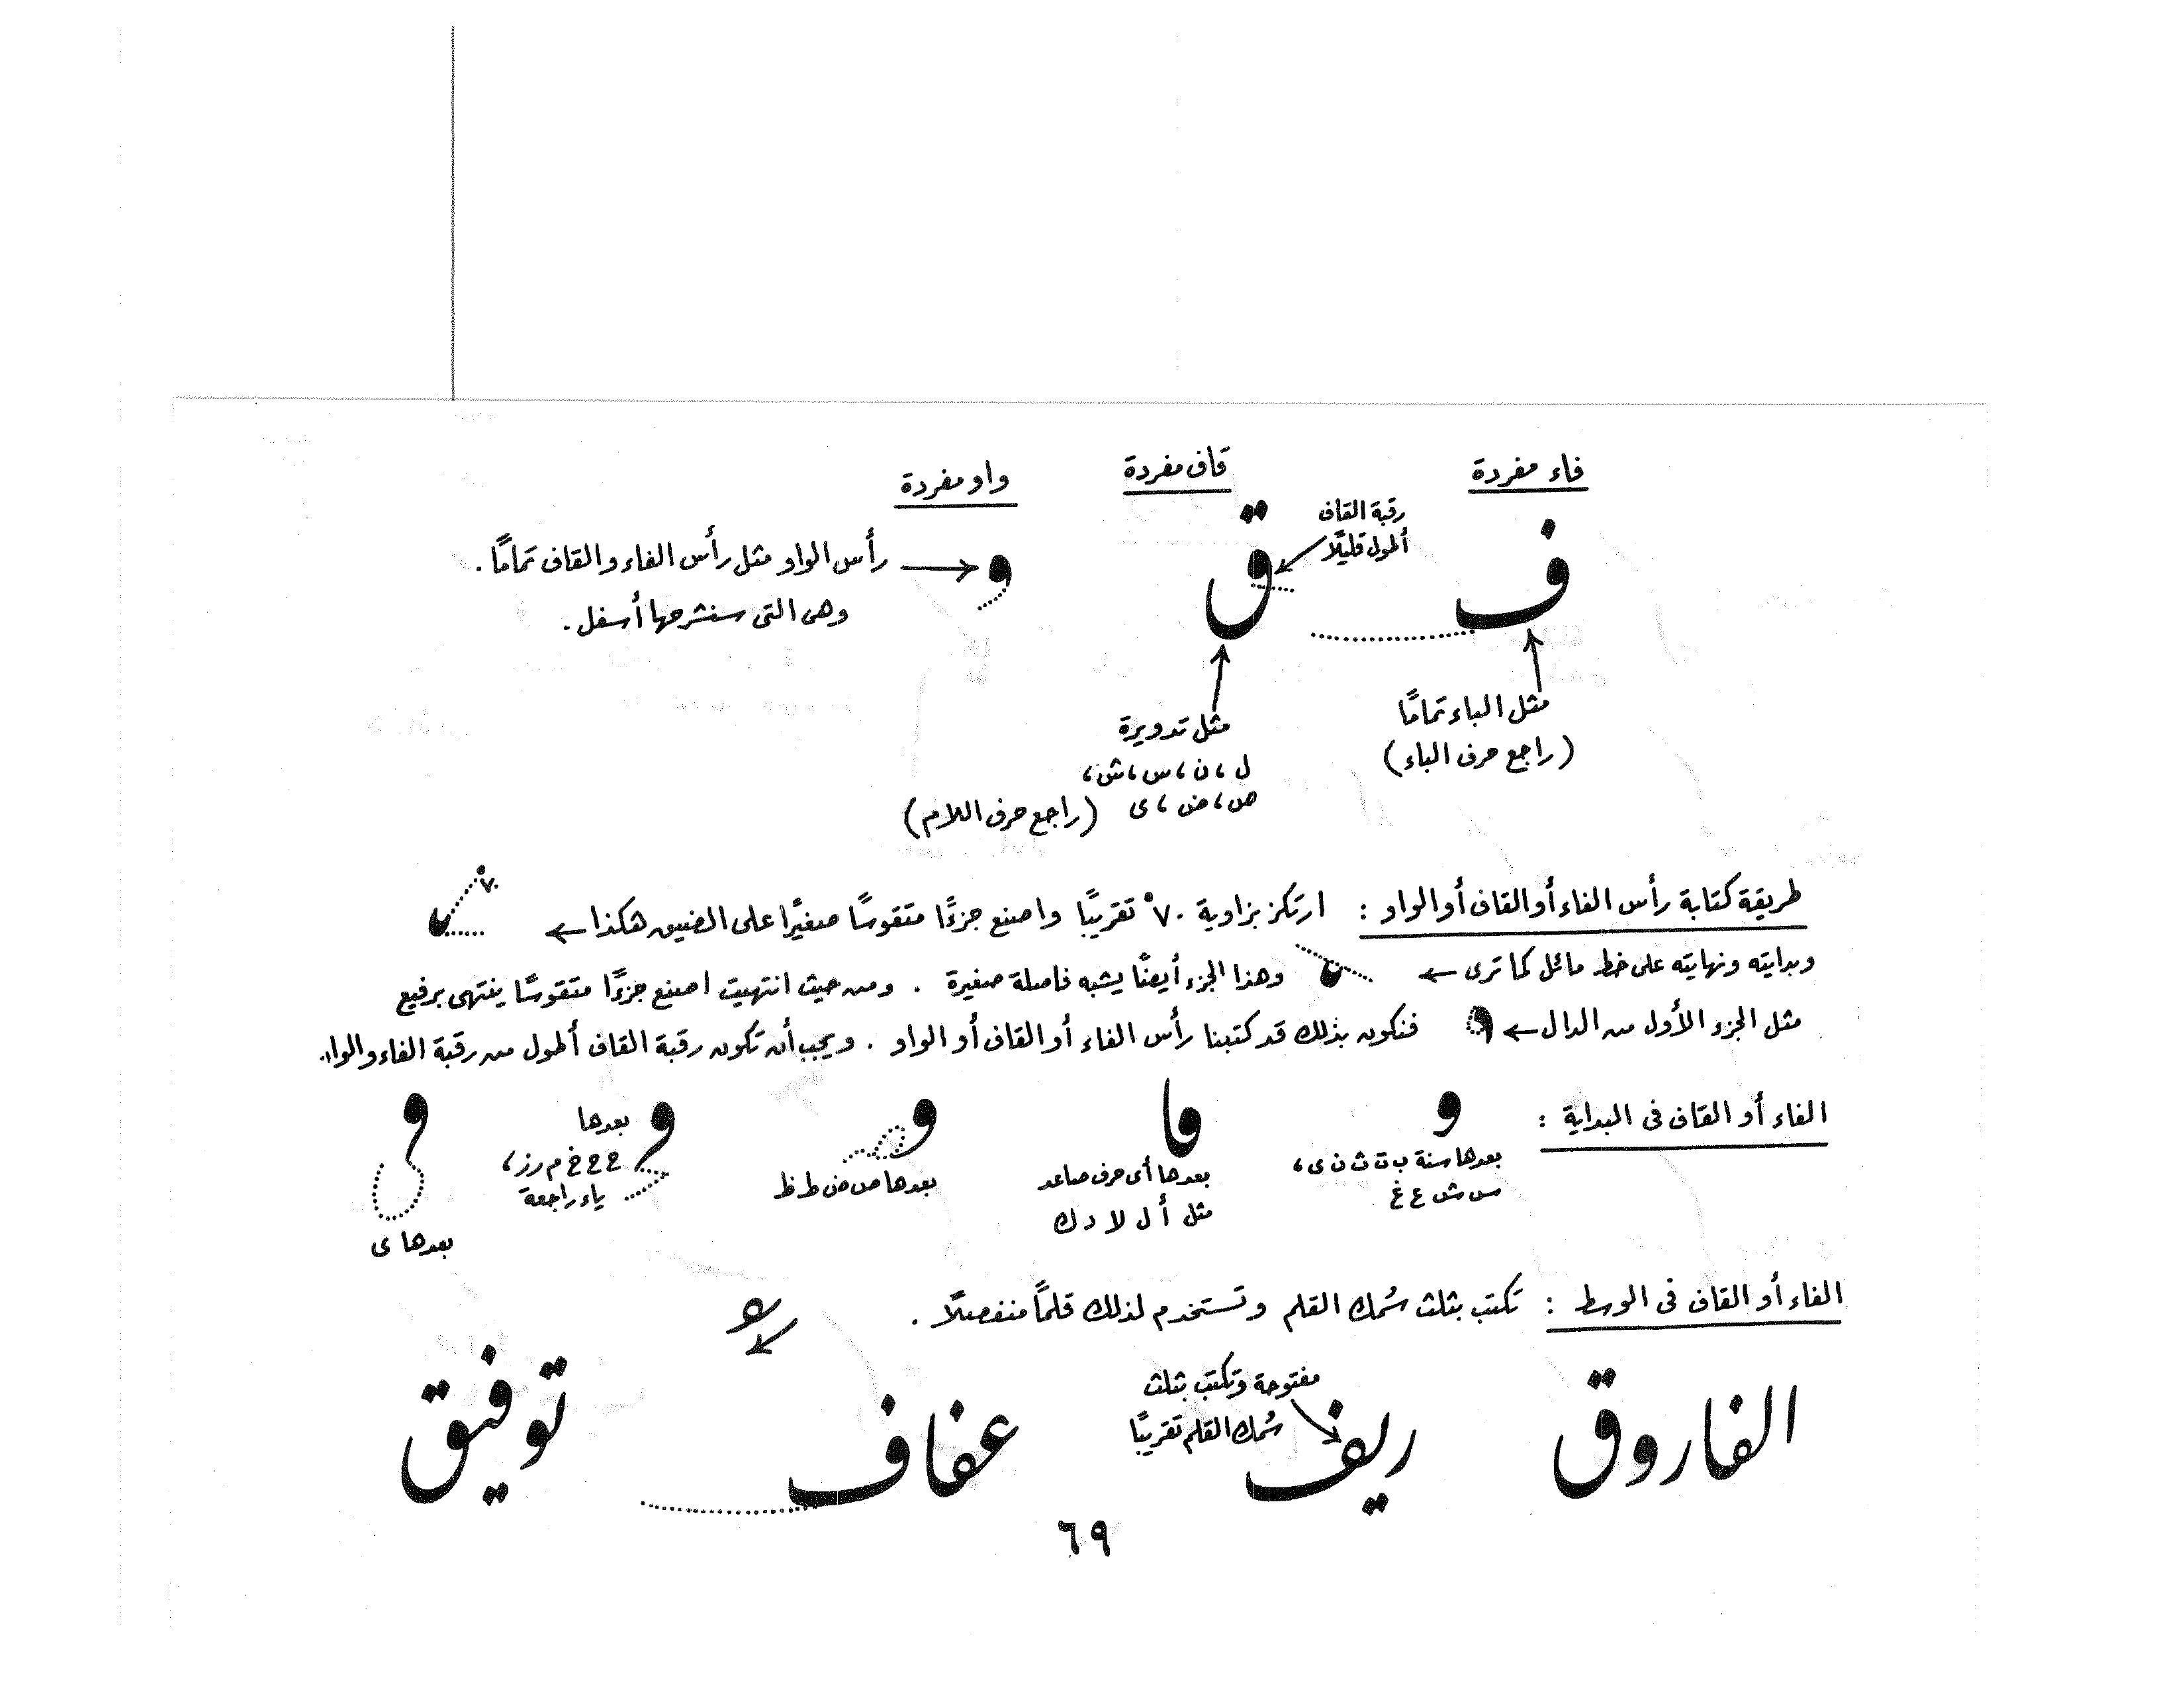 فاء مفردة
قاف مفردة
واو مفردة
ف
رقبة القاف
أطول قليلًا
ق
و
رأس الواو مثل رأس الفاء والقاف تمامًا .
وهى التى سنشرحها أسفل .
مثل الباء تمامًا
(راجع حرف الباء)
مثل تدويرة
ل ، ن ، س ، ش ،
ص ، ض ، ى (راجع حرف اللام)
طريقة كتابة رأس الفاء أو القاف أو الواو : ارتكز بزاوية ٧٠° تقريبًا واصنع جزءًا متقوسًا صغيرًا على الضيق هكذا ← ٧٠°
وبدايته ونهايته على خط مائل كما ترى ← وهذا الجزء أيضًا يشبه فاصلة صغيرة . ومن حيث انتهيت اصنع جزءًا متقوسًا ينتهى برفيع
مثل الجزء الأول من الدال ← فنكون بذلك قد كتبنا رأس الفاء أو القاف أو الواو . ويجب أن تكون رقبة القاف أطول من رقبة الفاء والواو.
الفاء أو القاف فى البداية :
بعدها سنة ب ت ث ن ى ،
س ش ع غ
بعدها أى حرف صاعد
مثل أ ل لا د ك
بعدها ص ض ط ظ
بعدها
ح ج خ م ر ز ،
ياء راجعة
بعدها ى
الفاء أو القاف فى الوسط : تكتب بثلث سُمك القلم وتستخدم لذلك قلمًا منفصلًا .
الفاروق
ريف
مفتوحة وتكتب بثلث
سُمك القلم تقريبًا
عفاف
توفيق
٦٩